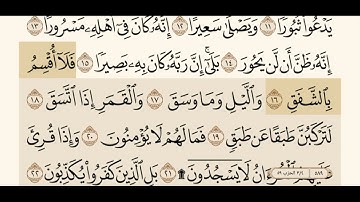 يَدْعُوا۟ ثُبُورًا ١١ وَيَصْلَىٰ سَعِيرًا ١٢ إِنَّهُۥ كَانَ فِىٓ أَهْلِهِۦ مَسْرُورًا ١٣
إِنَّهُۥ ظَنَّ أَن لَّن يَحُورَ ١٤ بَلَىٰٓ إِنَّ رَبَّهُۥ كَانَ بِهِۦ بَصِيرًا ١٥ فَلَآ أُقْسِمُ
بِٱلشَّفَقِ ١٦ وَٱلَّيْلِ وَمَا وَسَقَ ١٧ وَٱلْقَمَرِ إِذَا ٱتَّسَقَ ١٨
لَتَرْكَبُنَّ طَبَقًا عَن طَبَقٍ ١٩ فَمَا لَهُمْ لَا يُؤْمِنُونَ ٢٠ وَإِذَا قُرِئَ
عَلَيْهِمُ ٱلْقُرْءَانُ لَا يَسْجُدُونَ ۩ ٢١ بَلِ ٱلَّذِينَ كَفَرُوا۟ يُكَذِّبُونَ ٢٢
٥٨٩